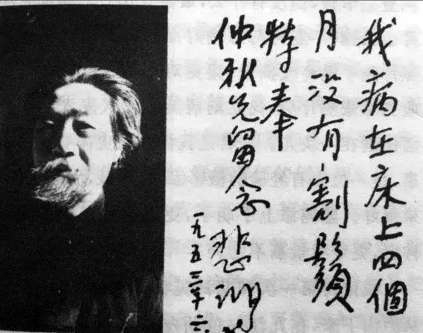 我病在床上四個
月没有割鬚
特奉
仲秋兄留念 悲鴻
一九五 年六